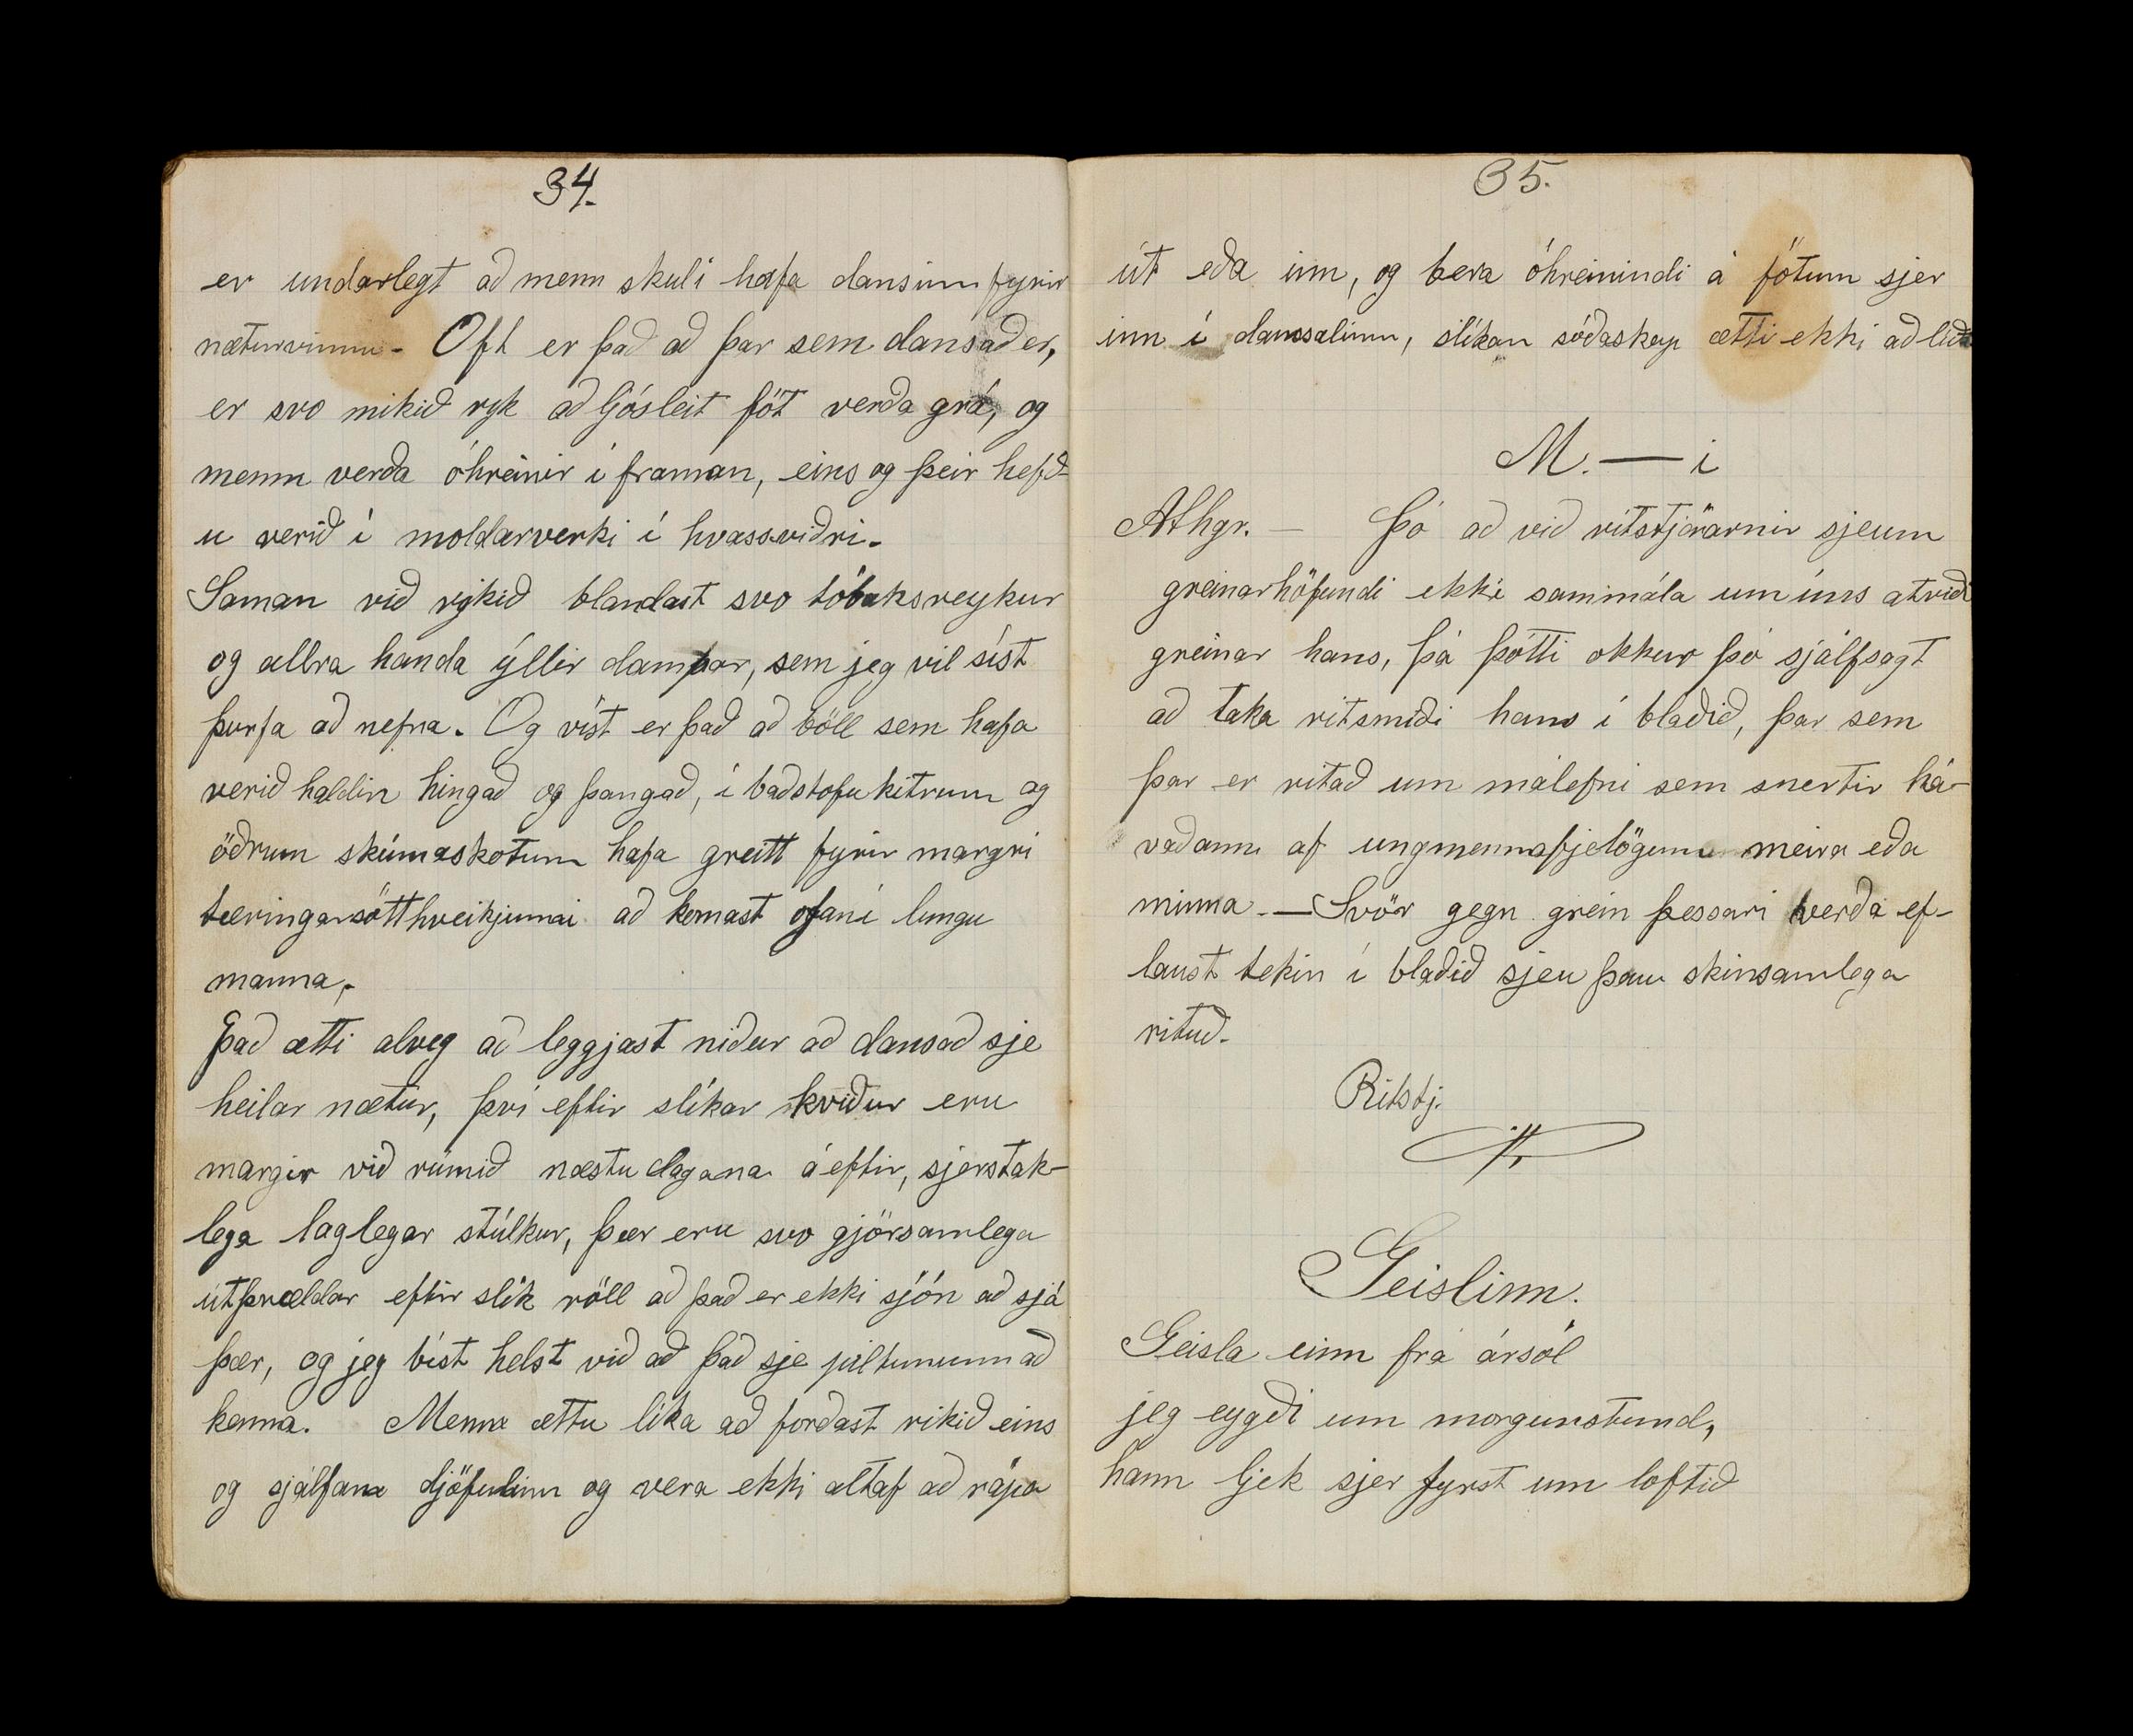 34.
er undarlegt að menn skuli hafa dansinn fyrir
næturvinnu - Oft er það að þar sem dansað er,
er svo mikið ryk að ljósleit föt verða grá, og
menn verða óhreinir í framan, eins og þeir hefð-
u verið í moldarverki í hvassviðri.
Saman við rykið blandast svo tóbaksreykur
og allra handa ýllir dampar, sem jeg vil síst
þurfa að nefna. Og víst er það að böll sem hafa
verið haldin hingað og þangað, í baðstofukitrum og
öðrum skúmaskotum hafa greitt fyrir margri
tæringarsóttkveikjunni að komast ofaní lungu
manna,-
Það ætti alveg að leggjast niður að dansað sje
heilar nætur, því eftir slíkar skviður eru
margir við rúmið næstu dagana á eftir, sjerstak-
lega laglegar stúlkur, þær eru svo gjörsamlega
útþrældar eftir slík röll að það er ekki sjón að sjá
þær, og jeg bíst helst við að það sje piltununm að
kenna. Menn ættu líka að forðast rikið eins
og sjálfann djöfulinn og vera ekki altaf að rápa
35.
út eða inn, og bera óhreinindi á fótum sjer
inn í danssalinn, slíkan sóðaskap ætti ekki að líða
M. — i
Athgr. — Þó að við ritstjórarnir sjeum
greinarhöfundi ekki sammála um íms atriði
greinar hans, þá þótti okkur þó sjálfsagt
að taka ritsmíði hans í blaðið, þar sem
þar er ritað um málefni sem snertir há-
vaðann af ungmennafjelögunu meira eða
minna. — Svör gegn grein þessari verða ef-
laust tekin í blaðið sjeu þau skinsamlega
rituð.
Ritstj.
Geislinn.
Geisla einn frá ársól
jeg eygði um morgunstund,
hann ljek sjer fyrst um loftið